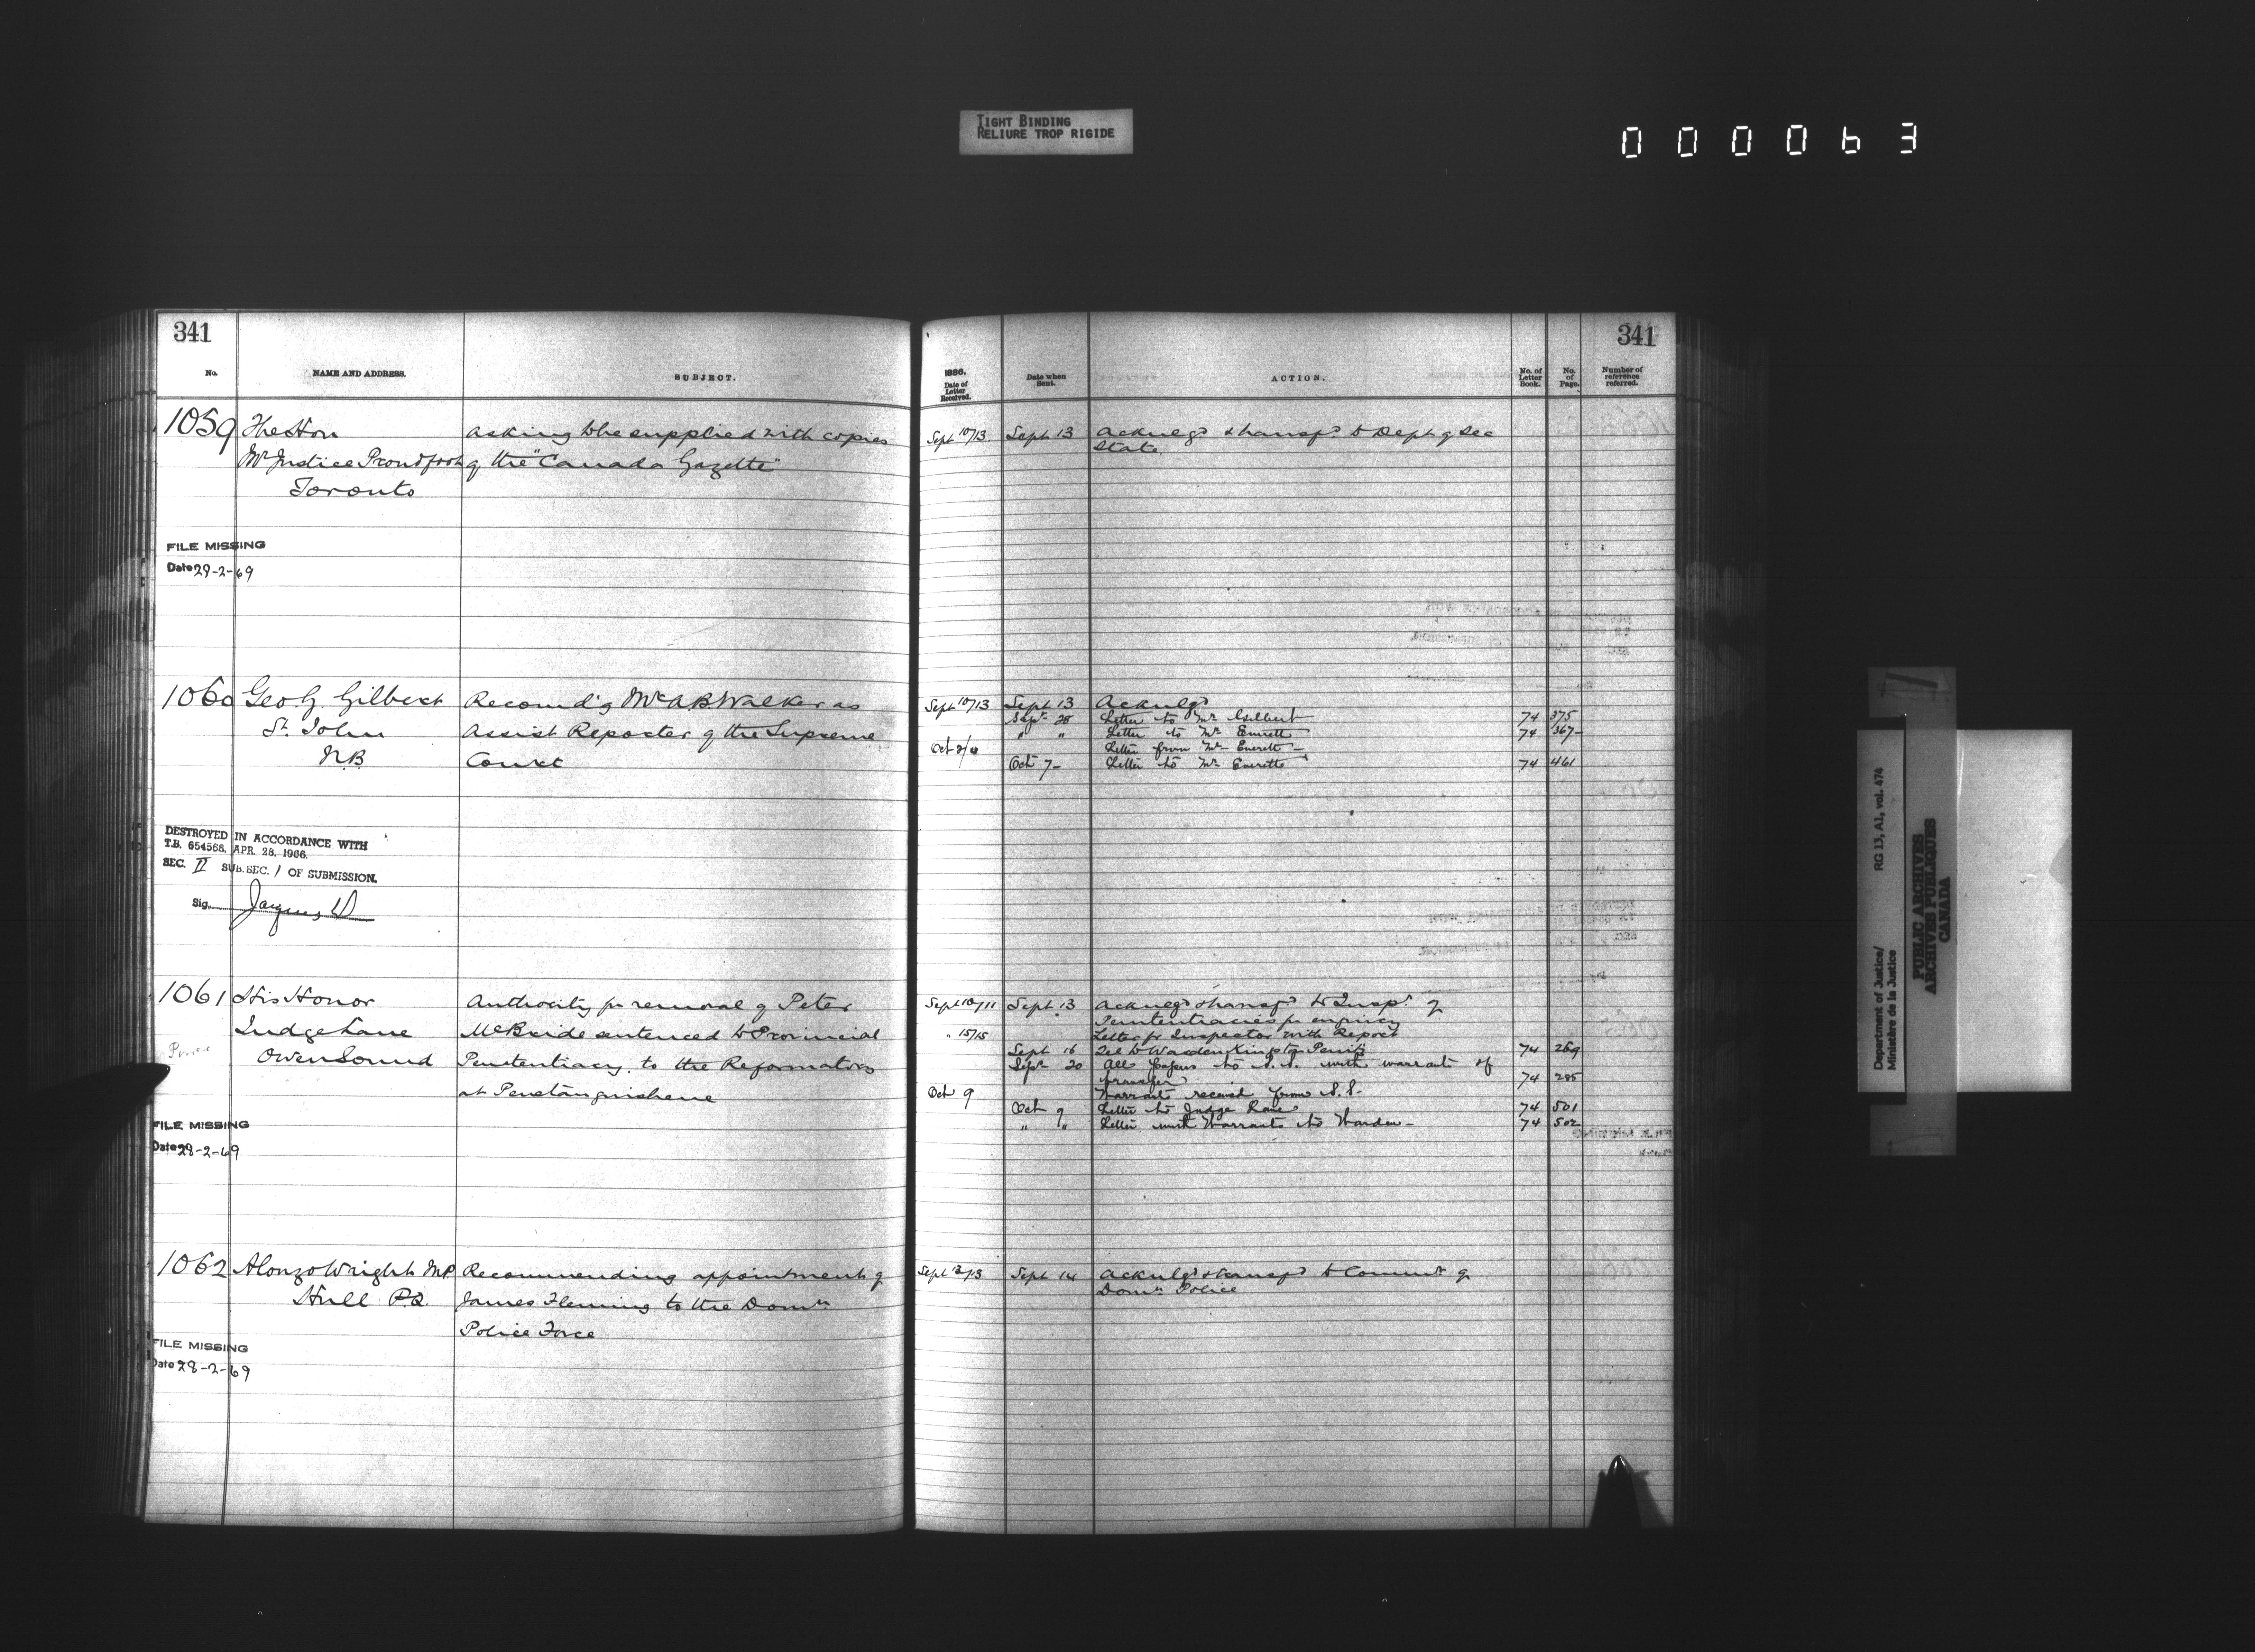 TIGHT BINDING
RELIURE TROP RIGIDE
000063
341
No.
NAME AND ADDRESS.
SUBJECT.
1059 The Hon asking to be supplied with copies
Mr Justice Proudfoot of the "Canada Gazette"
Toronto
FILE MISSING
Date 29-2-69
1060 Geo G. Gilbert Recomd'g Mr A B Walker as
St. John Assist Reporter of the Supreme
N.B Court
DESTROYED IN ACCORDANCE WITH
T.B. 654568, APR. 28, 1966.
SEC. II SUB.SEC. 1 OF SUBMISSION.
Sig.
1061 His Honor Authority for removal of Peter
Judge Lane McBride sentenced to Provincial
Owen Sound Penitentiacy, to the Reformatory
at Penetanguishene
FILE MISSING
Date 28-2-69
1062 Alonzo Wright MP Recommending appointment of
Hull P.Q. James Fleming to the Domn
Police Force
FILE MISSING
Date 28-2-69
341
1886.
Date of
Letter
Received.
Date when
Sent.
ACTION.
No. of
Letter
Book.
No.
of
Page.
Number of
reference
referred.
Sept 10/13 Sept 13 Acknlgd & transfd to Dept of Sec
State
Sept 10/13 Sept 13 Acknlgd
Sept 28 Letter to Mr Gilbert 74 375
" " Letter to Mr Everett 74 367
Oct 2/4 Letter from Mr Everett
Oct 7 Letter to Mr Everett 74 461
Sept 10/11 Sept 13 Acknlgd & transfd to Inspr of
Penitentiaries for enquiry
" 15/15 Letter fr Inspector with Report
Sept 16 Tel to Warden Kingston Penity 74 269
Sept 20 All papers to S.S. with warrant of
transfer 74 285
Oct 9 Warrant received from S.S.
Oct 9 Letter to Judge Lane 74 501
" " Letter with Warrant to Warden 74 502
Sept 13/13 Sept 14 Acknlgd & transfd to Commr of
Domn Police
Department of Justice/ RG 13, A1, vol. 474
Ministère de la Justice
PUBLIC ARCHIVES
ARCHIVES PUBLIQUES
CANADA